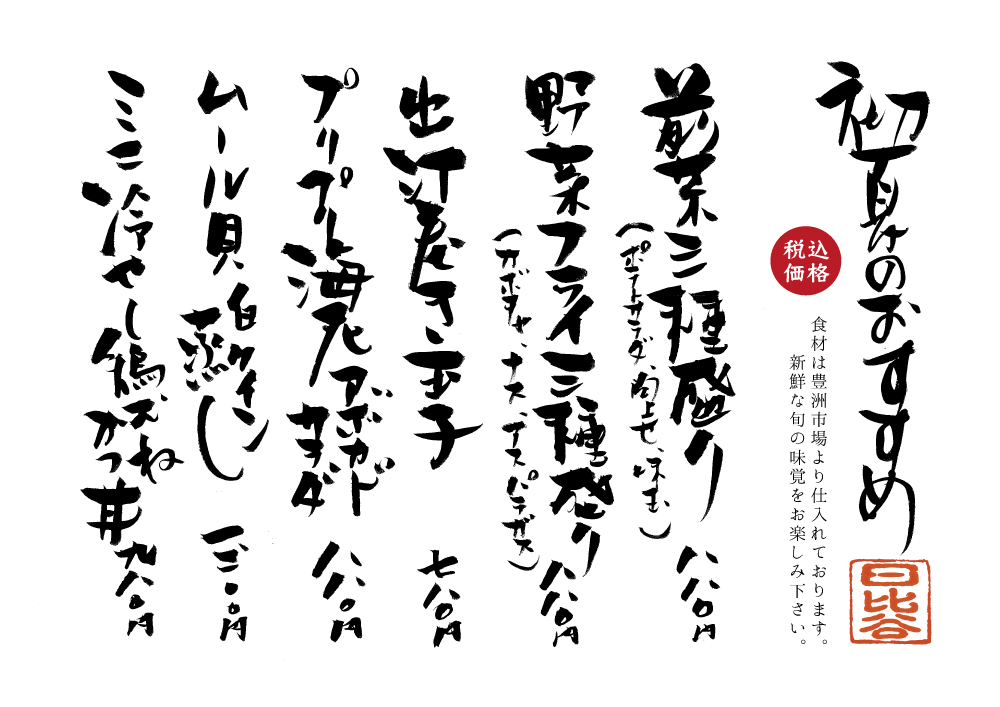 初夏のおすすめ
日比谷
税込
価格
食材は豊洲市場より仕入れております。
新鮮な旬の味覚をお楽しみ下さい。
前菜三種盛り 八八〇円
野菜フライ三種盛り 八八〇円
(カボチャ、ナス、アスパラガス)
出汁巻き玉子 七八〇円
プリプリ海老アボカドサラダ 八八〇円
ムール貝白ワイン蒸し
ミニ冷やし鶏ズねかつ丼 九八〇円